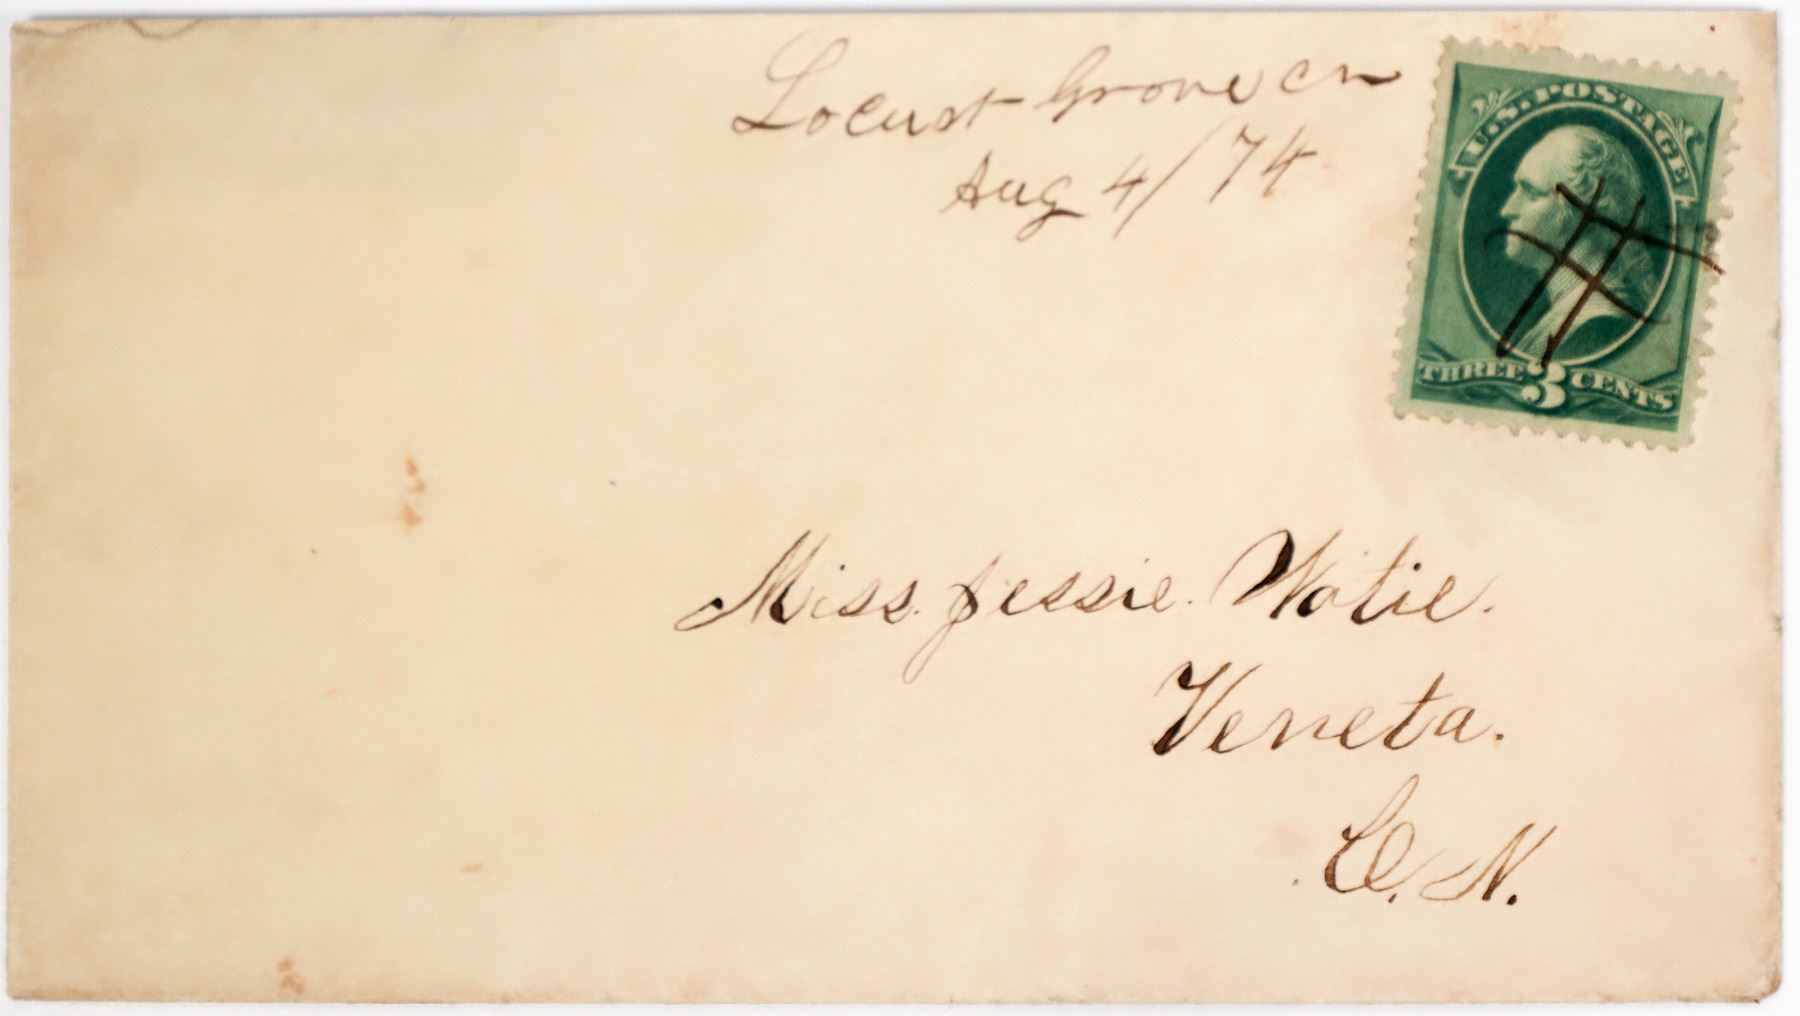 Locust Grove CN
Aug 4/74
U.S. POSTAGE
THREE 3 CENTS
Miss. Jessie. Watie.
Veneta.
C. N.